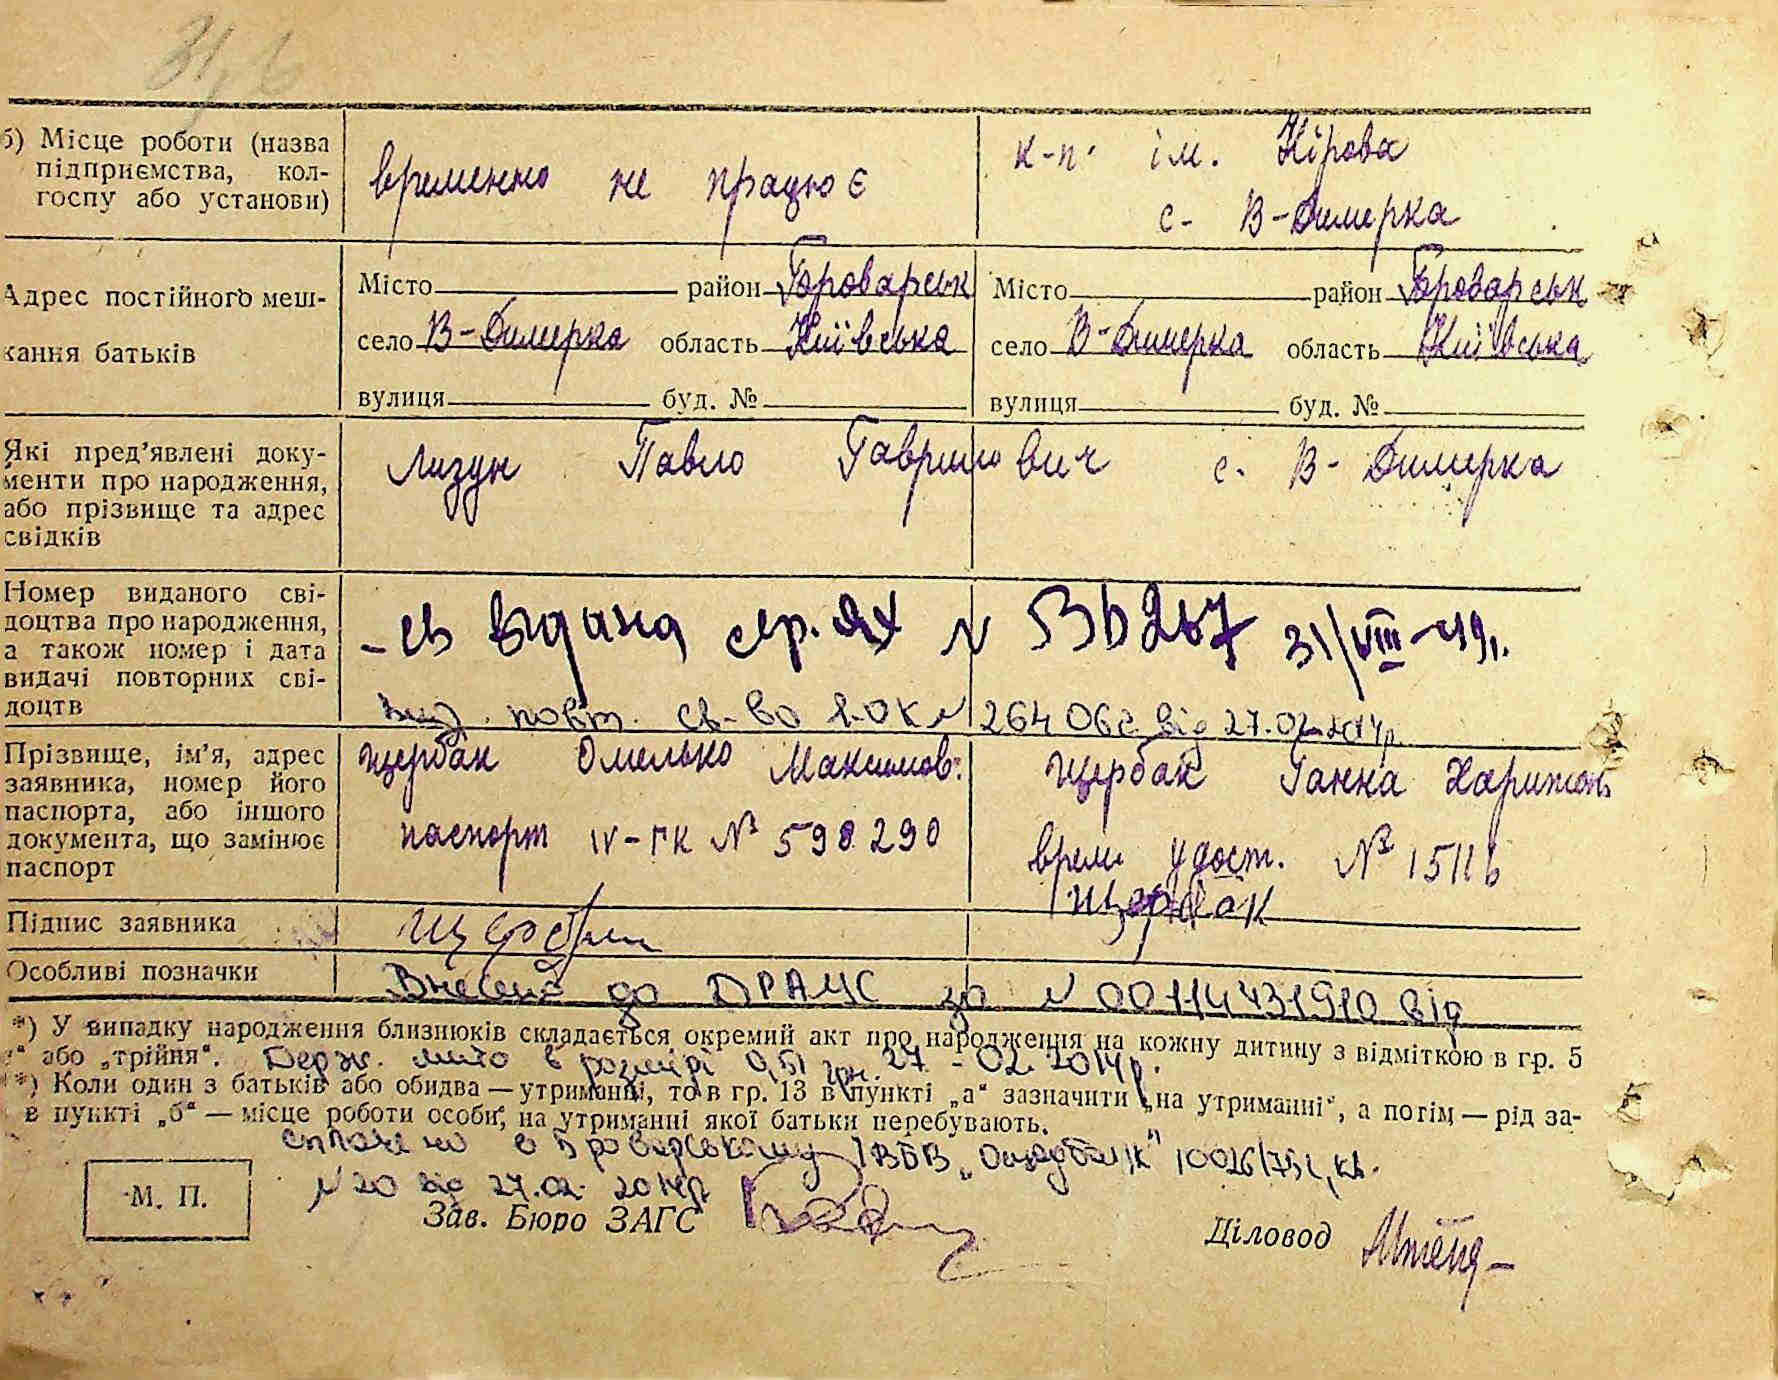 31, б
б) Місце роботи (назва
підприємства, кол-
госпу або установи)
временно не працює
к-п. ім. Кірова
с. В-Димерка
Адрес постійного меш-
кання батьків
Місто район Броварськ
село В-Димерка область Київська
вулиця буд. №
Місто район Броварськ
село В-Димерка область Київська
вулиця буд. №
Які пред'явлені доку-
менти про народження,
або прізвище та адрес
свідків
Лизун Павло Гаврилович с. В-Димерка
Номер виданого сві-
доцтва про народження,
а також номер і дата
видачі повторних сві-
доцтв
св видана сер. ЯХ № 536267 31/VIII-49г.
вид. повт. св-во І-ОК № 264062 від 27.02.2014р.
Прізвище, ім'я, адрес
заявника, номер його
паспорта, або іншого
документа, що замінює
паспорт
Щербак Омелько Максимов.
паспорт IV-ГК № 598290
Щербак Ганна Харитон
врем. удост. № 15116
Підпис заявника
Щербак
Щербак
Особливі позначки
Внесено до ДРАЦС за № 00114431910 від
*) У випадку народження близнюків складається окремий акт про народження на кожну дитину з відміткою в гр. 5
або „трійня“. Держ. мито в розмірі 0,51 грн. 27-02.2014р.
**) Коли один з батьків або обидва — утриманці, то в гр. 13 в пункті „а“ зазначити „на утриманні“, а потім — рід за-
в пункті „б“ — місце роботи особи, на утриманні якої батьки перебувають.
сплачено в Броварському ТВБВ „Ощадбанк“ 10026/0751, кв.
№ 20 від 27.02.2014р
М. П.
Зав. Бюро ЗАГС
Діловод